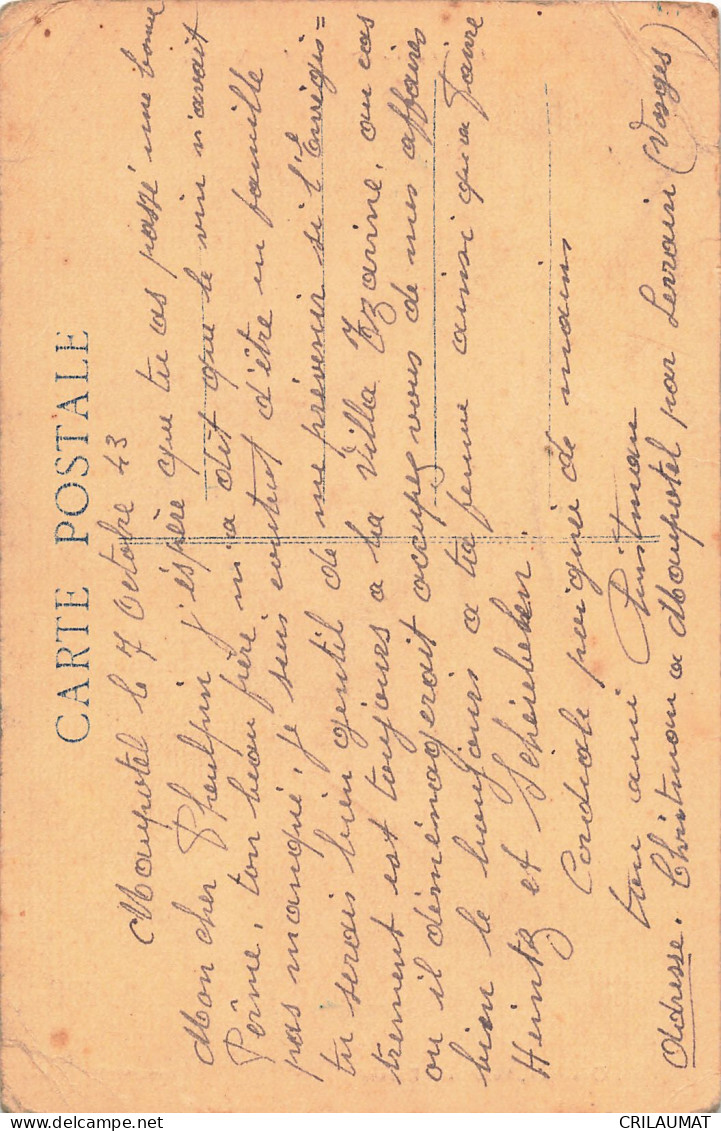 CARTE POSTALE
Maupotel le 7 Octobre 43
Mon cher Pfeulpin j'espère que tu as passé une bonne
Perme, ton beau frère m'a dit que le vin n'avait
pas manqué, je suis content d'être en famille
tu serais bien gentil de me prévenir si l'Enrégis=
trement est toujours a la Villa Tzarine, au cas
ou il déménagerait occupez vous de mes affaires
bien le bonjours a ta femme ainsi qu'a Faivre
Heintz et
Cordiale poignée de mains
ton ami Christman
Addresse. Christman a Maupotel par Lerrain (Vosges)
CRILAUMAT